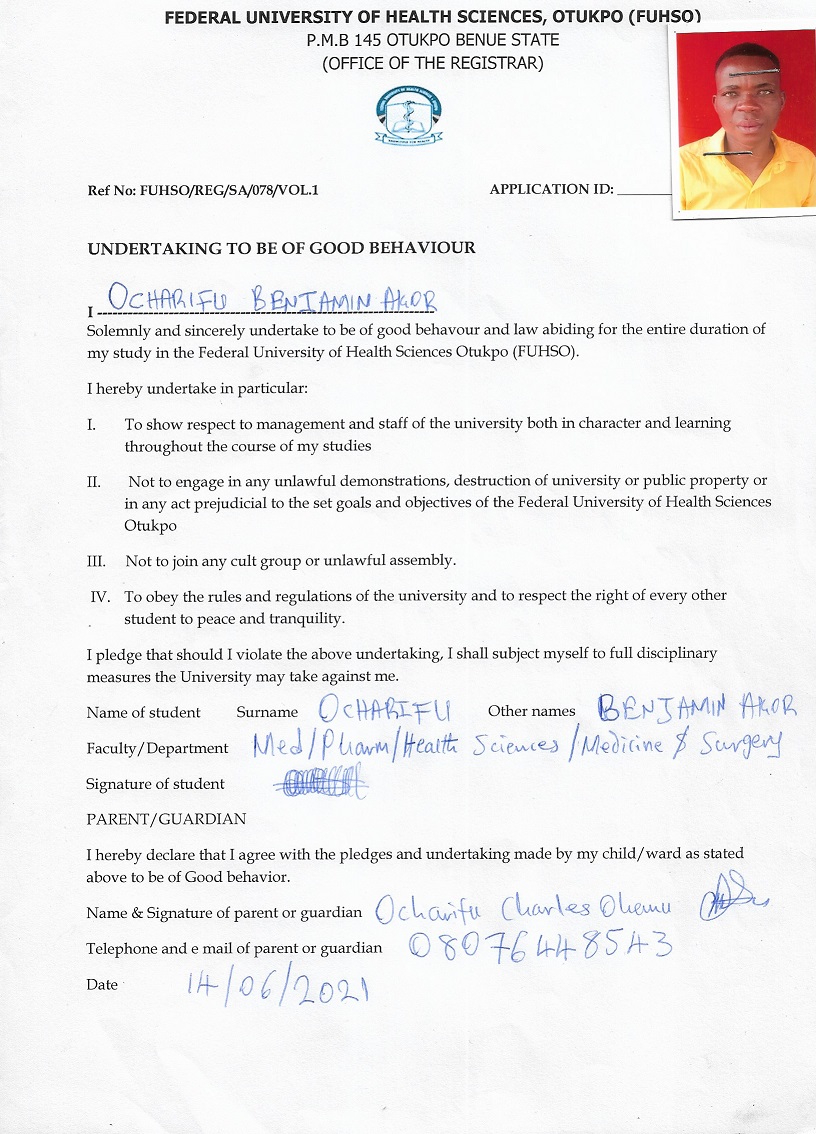 FEDERAL UNIVERSITY OF HEALTH SCIENCES, OTUKPO (FUHSO)
P.M.B 145 OTUKPO BENUE STATE
(OFFICE OF THE REGISTRAR)
Ref No: FUHSO/REG/SA/078/VOL.1 APPLICATION ID: ______
UNDERTAKING TO BE OF GOOD BEHAVIOUR
I OCHARIFU BENJAMIN AKOR
Solemnly and sincerely undertake to be of good behavour and law abiding for the entire duration of
my study in the Federal University of Health Sciences Otukpo (FUHSO).
I hereby undertake in particular:
I. To show respect to management and staff of the university both in character and learning
throughout the course of my studies
II. Not to engage in any unlawful demonstrations, destruction of university or public property or
in any act prejudicial to the set goals and objectives of the Federal University of Health Sciences
Otukpo
III. Not to join any cult group or unlawful assembly.
IV. To obey the rules and regulations of the university and to respect the right of every other
student to peace and tranquility.
I pledge that should I violate the above undertaking, I shall subject myself to full disciplinary
measures the University may take against me.
Name of student Surname OCHARIFU Other names BENJAMIN AKOR
Faculty/Department Med/Pharm/Health Sciences/Medicine & Surgery
Signature of student
PARENT/GUARDIAN
I hereby declare that I agree with the pledges and undertaking made by my child/ward as stated
above to be of Good behavior.
Name & Signature of parent or guardian Ocharifu Charles Ohemu
Telephone and e mail of parent or guardian 08076448543
Date 14/06/2021